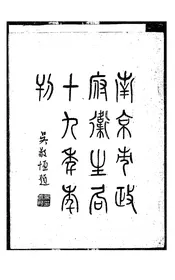 南京市政
府衞生局
十九年年
刊
吳敬恆題